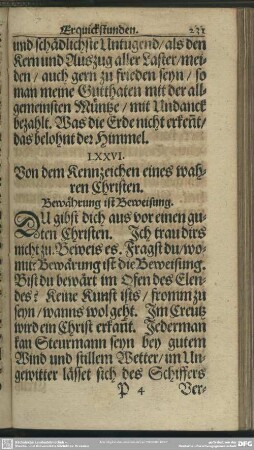 Erquickstunden. 231
und schädlichste Untugend/als den
Kern und Auszug aller Laster/mei-
den/auch gern zu frieden seyn/so
man meine Gutthaten mit der all-
gemeinsten Müntze/mit Undanck
bezahlt. Was die Erde nicht erkeñt/
das belohnt der Himmel.
LXXVI.
Von dem Kennzeichen eines wah-
ren Christen.
Bewährung ist Beweisung.
DU gibst dich aus vor einen gu-
ten Christen. Ich trau dirs
nicht zu. Beweis es. Fragst du/wo-
mit? Bewärung ist die Beweisung.
Bist du bewärt im Ofen des Elen-
des? Keine Kunst ists/fromm zu
seyn/wanns wol geht. Im Creutz
wird ein Christ erkañt. Jederman
kan Steurmann seyn bey gutem
Wind und stillem Wetter/im Un-
gewitter lässet sich des Schiffers
P 4 Ver-